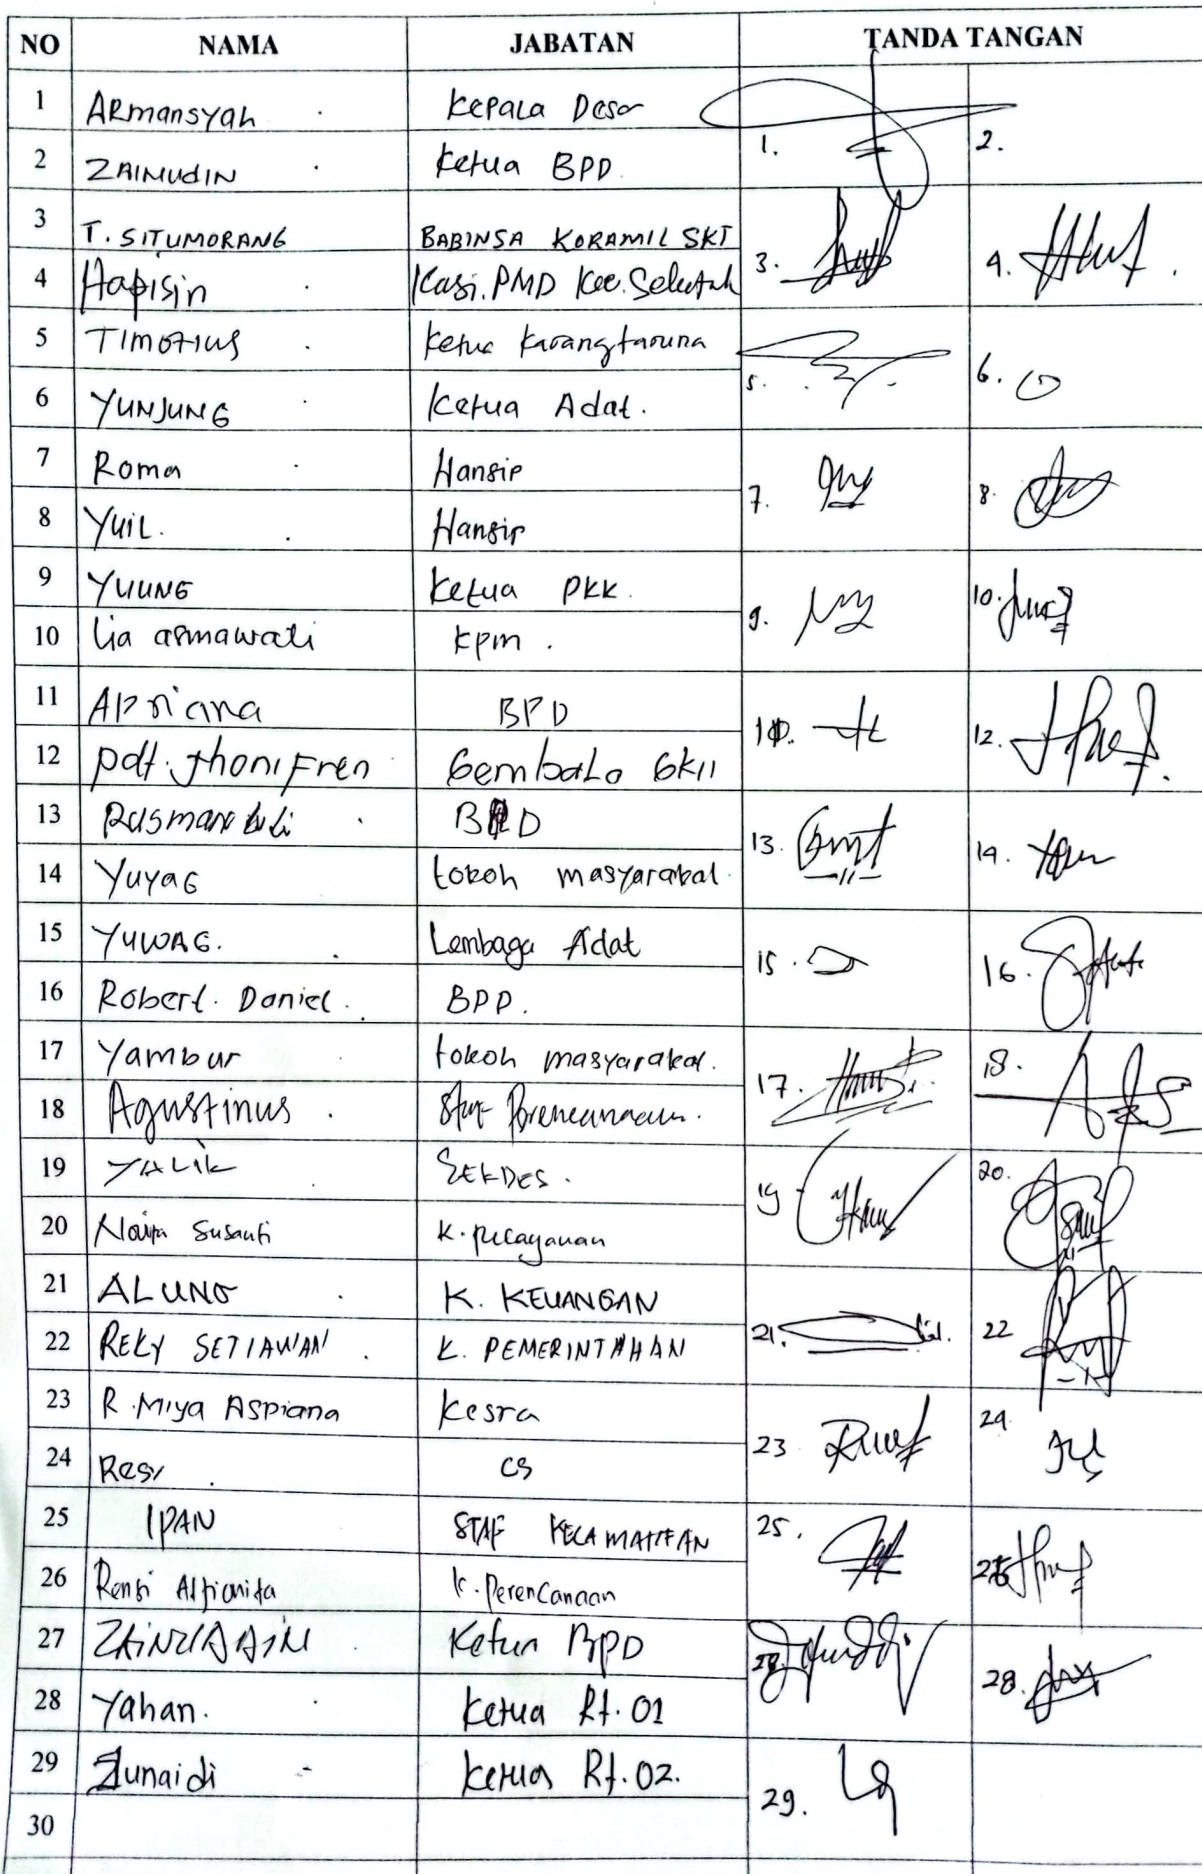 NO NAMA JABATAN TANDA TANGAN
1 Armansyah Kepala Desa 1.
2 ZAINUDIN Ketua BPD 2.
3 T. SITUMORANG BABINSA KORAMIL SKT 3.
4 Hapisin Kasi. PMD Kec. 4.
5 Timotius Ketua Karangtaruna 5.
6 YUNJUNG Ketua Adat. 6.
7 Roma Hansip 7.
8 Yuil. Hansip 8.
9 YUUNG Ketua PKK. 9.
10 Lia asmawati kpm. 10.
11 Apriana BPD
12 pdt. Jhonifren Gembala GKII 12.
13 BPD 13.
14 YUYAG tokoh masyarakat. 14.
15 YUWAG. Lembaga Adat 15.
16 Robert. Daniel. BPD. 16.
17 Yambur tokoh masyarakat. 17.
18 Agustinus Staf Perencanaan. 18.
19 YALIK SEKDES. 19
20 Novita Susanti K. pelayanan 20.
21 ALUNG K. KEUANGAN 21.
22 REKY SETIAWAN K. PEMERINTAHAN 22
23 R. Miya Aspiana Kesra 23
24 Resi CS 24.
25 IPAN STAF KECAMATAN 25.
26 Rensi Alfionita K. Perencanaan 26
27 Ketua BPD
28 Yahan. Ketua Rt. 01 28.
29 Junaidi Ketua Rt. 02. 29.
30